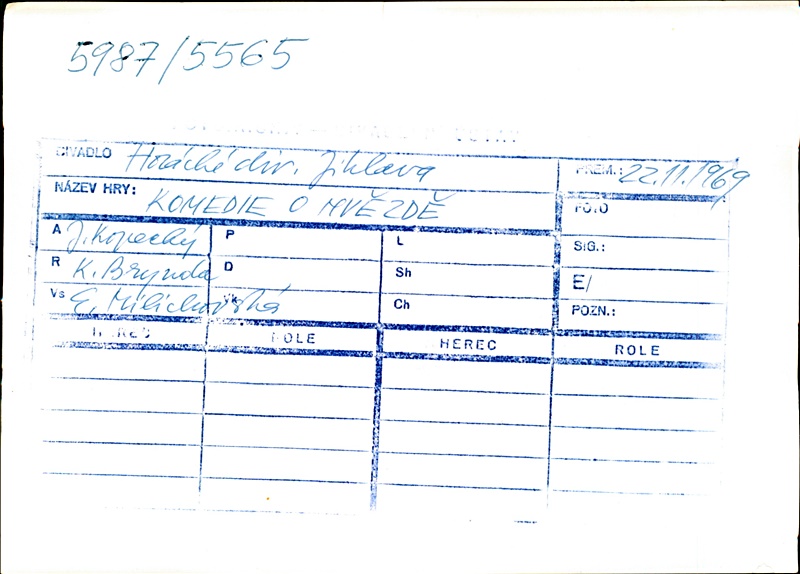 5987/5565
DIVADLO Horácké div. Jihlava PREM.: 22.11.1969
NÁZEV HRY: KOMEDIE O HVĚZDĚ FOTO
A J. Kopecký P L SIG.:
R K. Brynda D Sh E/
Vs E. Milichovská Vk Ch POZN.:
HEREC ROLE HEREC ROLE